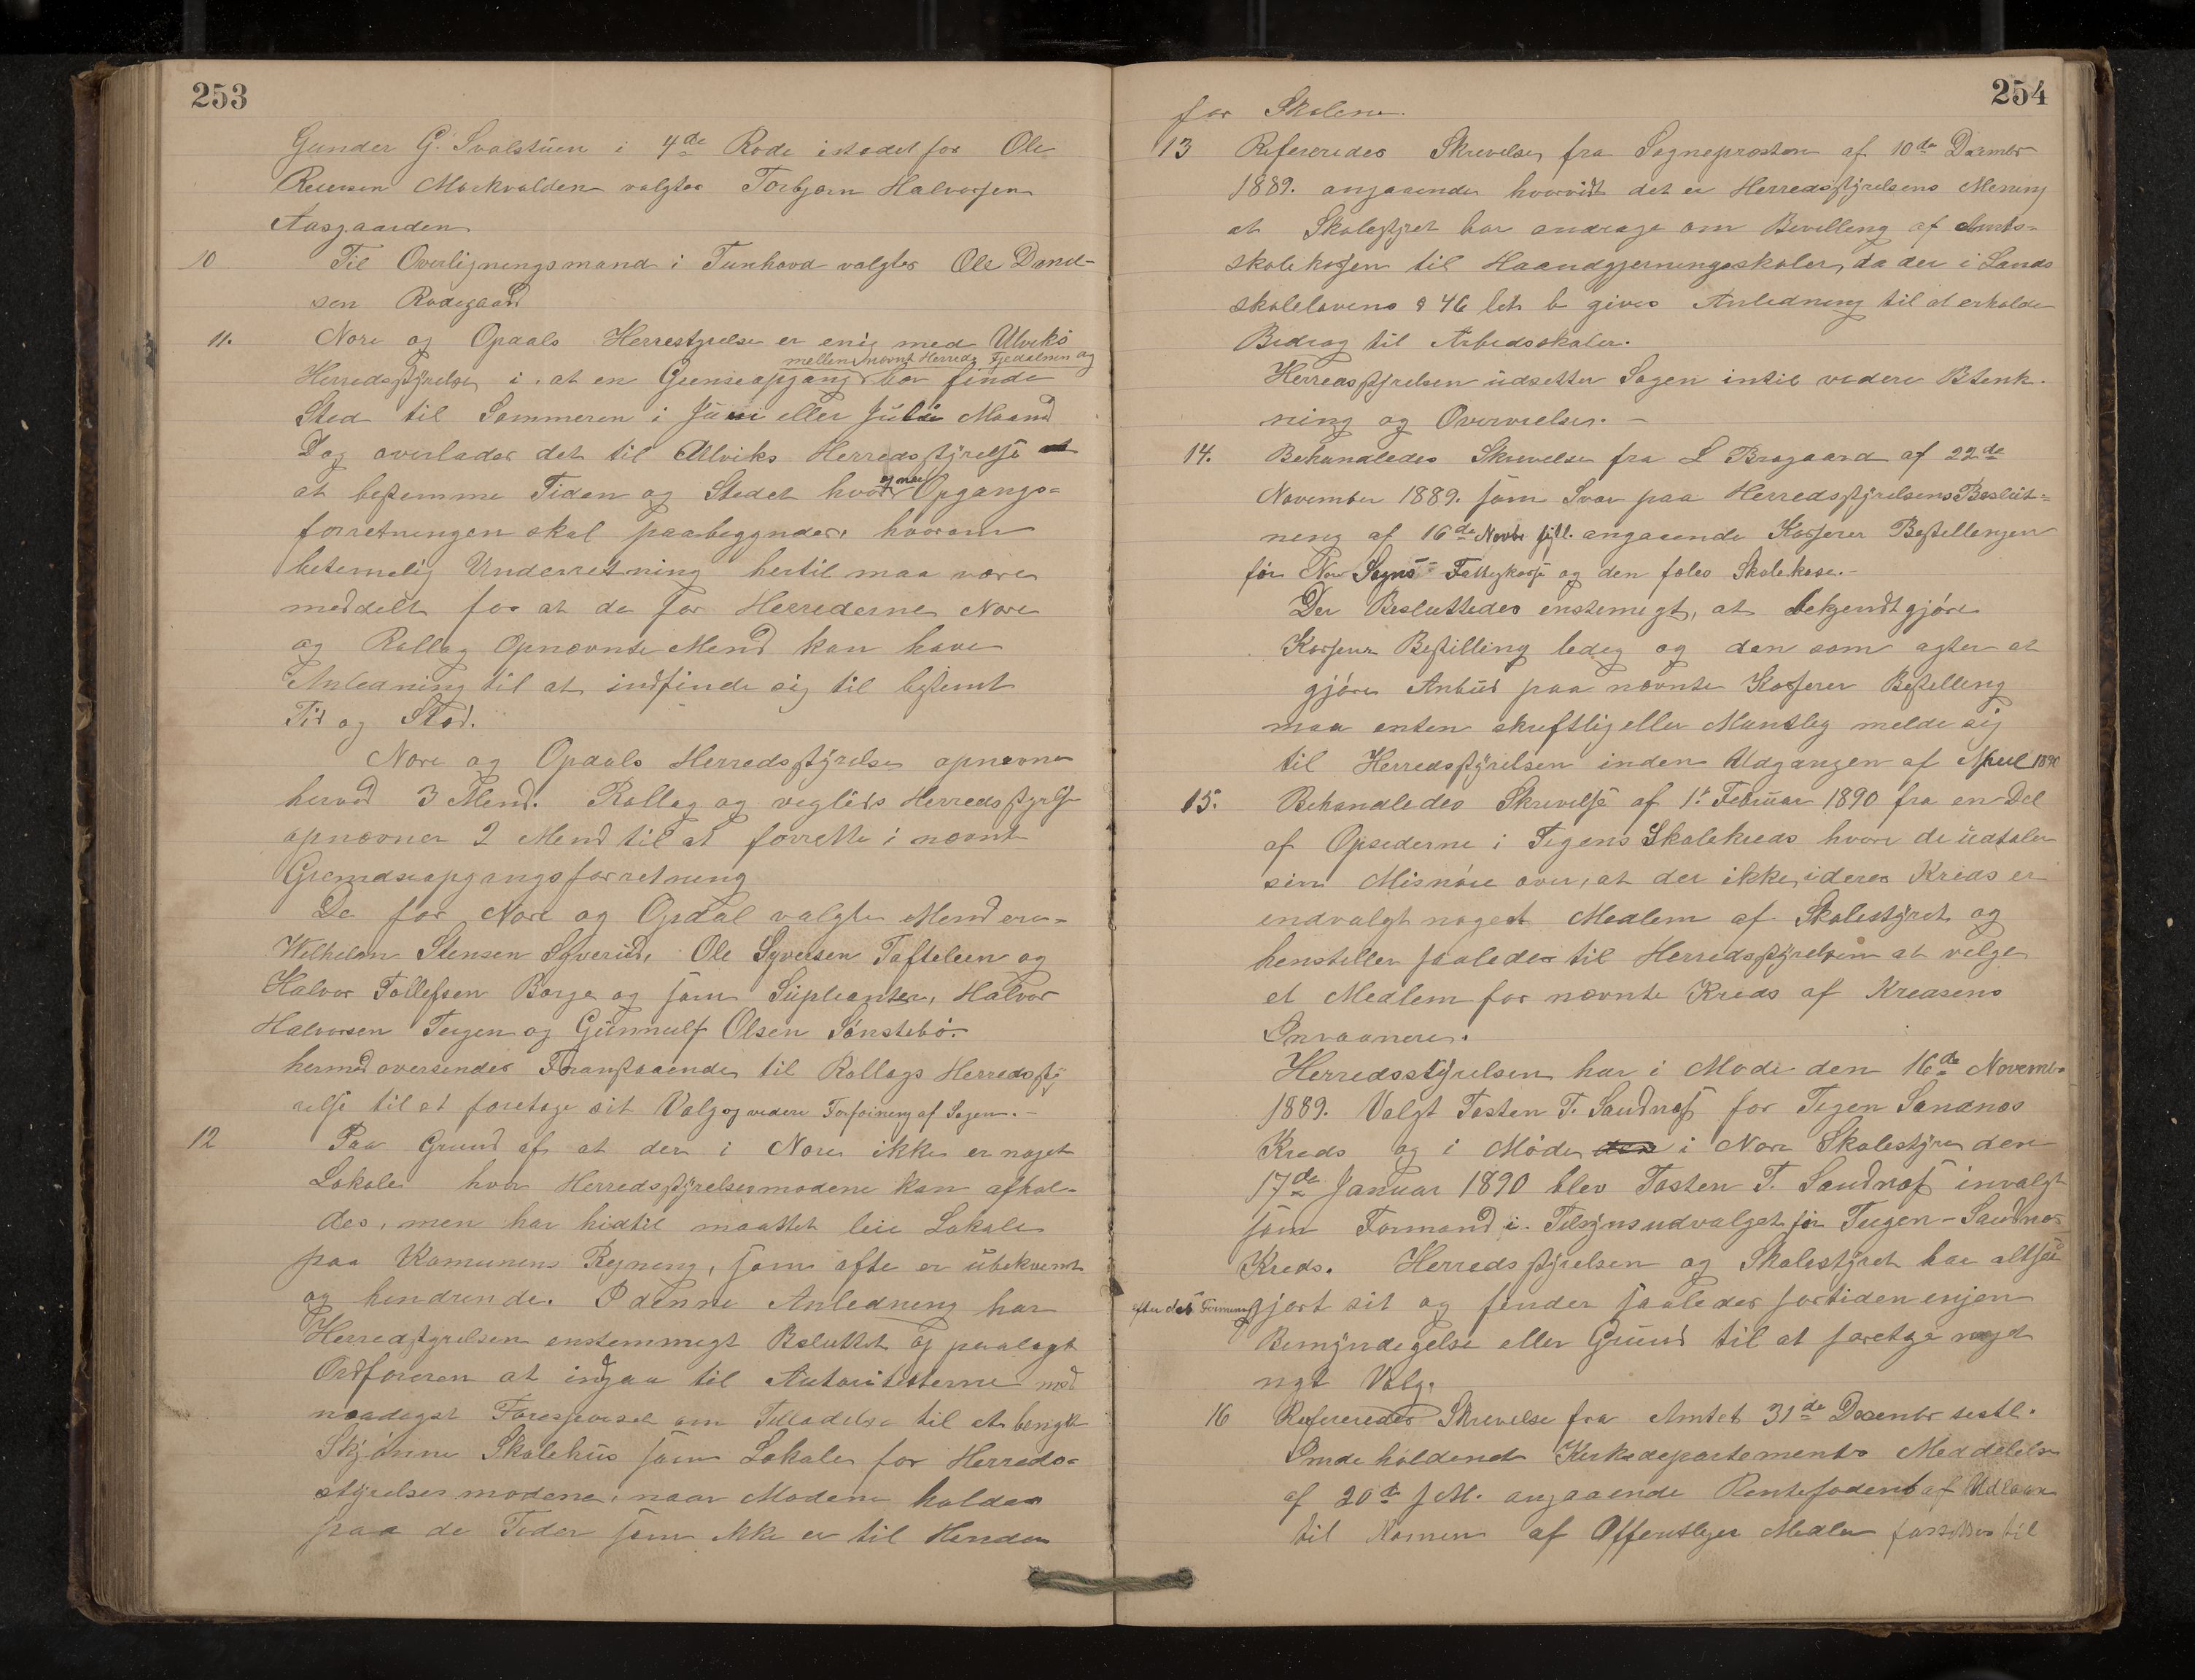 253
Gunder G. Svalstuen i 4de Rode istedet for Ole
Reiersen Markvolden valgtes Torbjørn Halvorsen
Aasgaarden
10 Til Overligningsmand i Tunhovd valgtes Ole Danel-
sen Rødegaard
11. Nore og Opdals Herrestyrelse er enig med Ulviks
mellem nævnt Herreds Fjedalmen og
Herredsstyrelse i at en Grenseopgang bør finde
Sted til Sommeren i Juni eller Juli Maaned
Dog overlades det til Ulviks Herredsstyrelse
at bestemme Tiden og Stedet hvor og naar Opgangs=
forretningen skal paabegyndes hvorom
betimelig Underretning hertil maa være
meddelt for at de for Herrederne Nore
og Rollag Opnævnte Mend kan have
Anledning til at indfinde sig til bestemt
Tid og Sted.
Nore og Opdals Herredsstyrelse opnævner
herved 3 Mend. Rollag og veglids Herredsstyrelse
opnævner 2 Mend til at forrette i nævnt
Grendseopgangsforretning
De for Nore og Opdal valgte Mend ere=
Welhelm Stensen Syverud, Ole Syversen Taftelien og
Halvor Tollefsen Borge og som Supleanter, Halvor
Halvorsen Teigen og Gunnulf Olsen Sønstebø.
hermed oversendes Foranstaaende til Rollags Herredssty
relse til at foretage sit Valg og videre Forføining af Sagen.-
12 Paa Grund af at der i Nore ikke er noget
Lokale hvor Herredsstyrelsesmøderne kan afhol-
des, men har hidtil maattet leie Lokale
paa Komunens Regning, som ofte er ubekvemt
og hendrende. I denne Anledning har
Herredstyrelsen enstemmigt Besluttet og paalagt
Ordføreren at indgaa til Autoriteterne med
naadigst Forespørsel om Tilladelse til at benytte
Skjønne Skolehus som Lokale for Herreds=
styrelses møderne, naar Møderne holdes
paa de Tider som ikke er til Hender
254
for Skolene.
13 Refereredes Skrivelse fra Sogneprosten af 10de Desember
1889. angaaende hvorvidt det er Herredsstyrelsens Mening
at Skolestyret bør andrage om Bevilling af Amts=
skolekassen til Haandgjerningsskoler, da der i Lands
skolelovens § 46 lit b gives Anledning til at erholde
Bidrag til Arbeidsskoler.
Herredsstyrelsen udsetter Sagen intil videre Btenk-
ning og Overveielser.-
14. Behandledes Skrivelse fra L Bragaard af 22de
November 1889. som Svar paa Herredsstyrelsens Beslut=
ning af 16de Novbr sistl. angaaende Kasserer Bestillingen
for Nore Sogns Fattigkasse og den fæles Skolekasse.-
Der Besluttedes enstemigt, at bekjendtgjøre
Kasserer Bestilling ledig og den som agter at
gjøre Anbud paa nævnte Kasserer Bestilling
maa enten skriftlig eller Muntlig melde sig
til Herredsstyrelsen inden Udgangen af April 1890
15. Behandledes Skrivelse af 1st Februar 1890 fra en Del
af Opsederne i Tegens Skolekreds hvori de udtaler
sin Misnøie over, at der ikke i deres Kreds er
indvalgt noget Medlem af Skolestyret og
henstiller saaledes til Herredsstyrelsen at velge
et Medlem for nævnte Kreds af Kredsens
Invaanere.
Herredsstyrelsen har i Møde den 16de November
1889. Valgt Tosten T. Sandnæs for Tegen Sandnæs
Kreds og i Møde i Nore Skolestyre den
17de Januar 1890 blev Tosten T. Sandnæs invalgt
som Formand i Tilsynsudvalget for Teigen-Sandnæs
Kreds. Herredsstyrelsen og Skolestyret har altsaa
efter des Formening gjort sit og finder saaledes fortiden ingen
Bemyndigelse eller Grund til at foretage noget
nyt Valg.
16 Refereredes Skrivelse fra Amtet 31de Decembr sistl.
Indeholdende Kirkedepartements Meddelelse
af 20de s.M. angaaende Rentefoden af Udlaan
til Komun af Offentlige Medler forsettes til